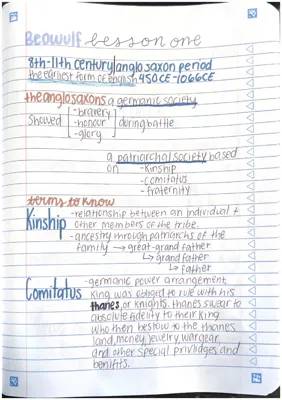 Beowulf lesson one
8th-11th century/anglo saxon period
the earliest form of english 450CE-1066CE
the anglo saxons a germanic society
showed -bravery
-honour during battle
-glory
a patriarchal society based
on -kinship
-comitatus
-fraternity
terms to know
Kinship -relationship between an individual +
other members of the tribe.
-ancestry through patriarchs of the
family → great-grand father
↳ grand father
↳ father
Comitatus -germanic power arrangement
King was obliged to rule with his
thanes, or knights. thanes swear to
absolute fidelity to their king
who then bestow to the thanes
land, money, jewelry, wargear,
and other special priviledges and
benifits.